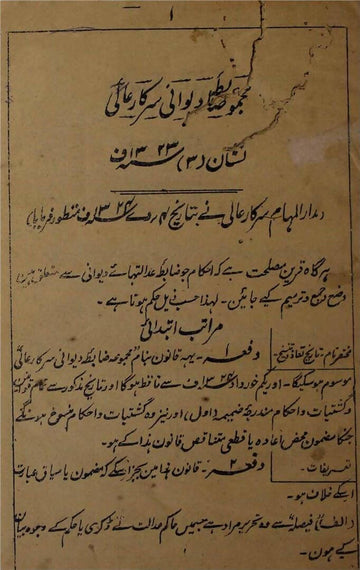 ۱
مجموعہ ضابطہ دیوانی سرکار عالی
نشان (۳) ۱۳۲۳ ف
مدار المہام سرکار عالی نے بتاریخ ۱۳۲۴ ف منظور فرمایا)
ہرگاہ قرین مصلحت ہے کہ احکام جو ضابطہ عدالتہائے دیوانی سے متعلق ہیں
وضع و جمع و ترمیم کیے جائیں - لہذا حسب ذیل حکم ہوتا ہے -
مراتب ابتدائی
مختصر نام - تاریخ نفاذ تنسیخ - دفعہ ۱ - یہہ قانون بنام مجموعہ ضابطہ دیوانی سرکار عالی
موسوم ہو سکیگا - اور یکم خورداد ۱۳۲۴ ف سے نافذ ہوگا اور تاریخ مذکور سے تمام قوانین
و گشتیات و احکام مندرجہ ضمیمہ (اول) اور نیز وہ گشتیات و احکام منسوخ ہونگے
جنکا مضمون محض اعادہ یا قطعی متناقض قانون ہذا کے ہو -
تعریفات - دفعہ ۲ - قانون ہذا میں بجز اسکے کہ مضمون یا سیاق عبارت
اسکے خلاف ہو -
(الف) "فیصلہ" سے وہ تحریر مراد ہے جسمیں حاکم عدالت نے ڈگری یا حکم کے وجوہ بیان
کیے ہون -